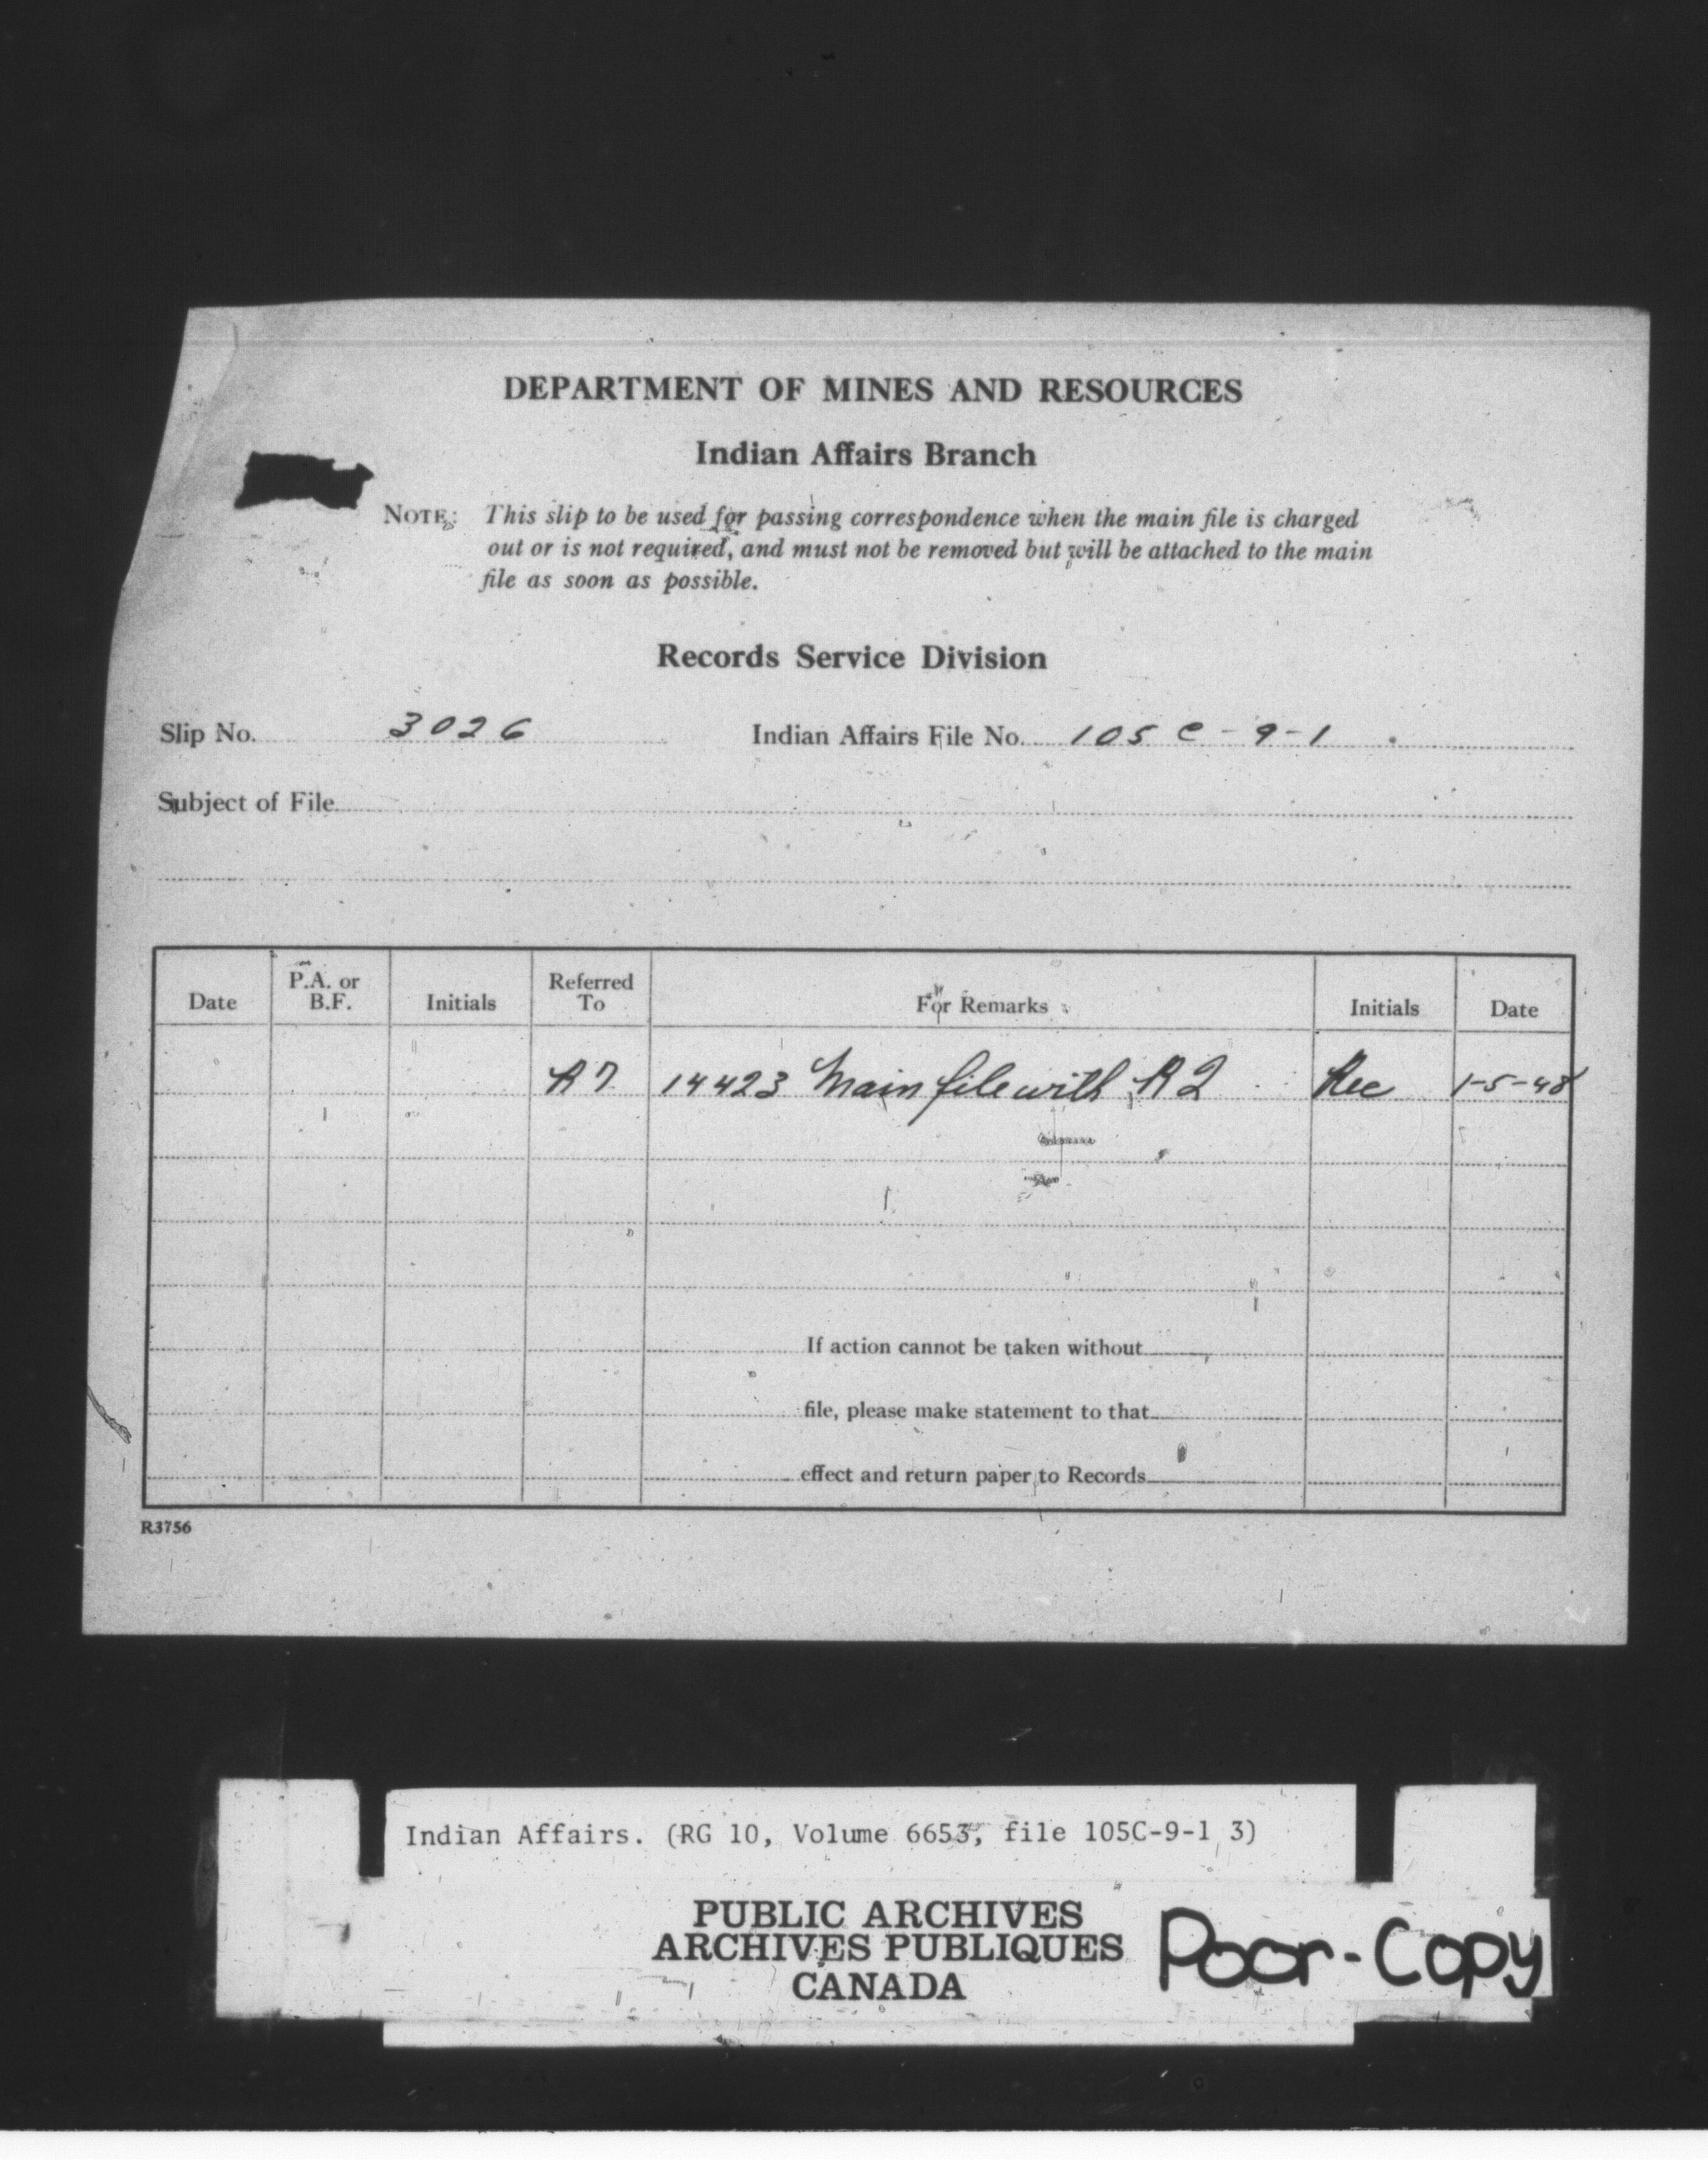 DEPARTMENT OF MINES AND RESOURCES
Indian Affairs Branch
NOTE: This slip to be used for passing correspondence when the main file is charged
out or is not required, and must not be removed but will be attached to the main
file as soon as possible.
Records Service Division
Slip No. 3026 Indian Affairs File No. 105 C-9-1.
Subject of File
Date P.A. or B.F. Initials Referred To For Remarks Initials Date
R7 14423 Main file with R2 Rec 1-5-48
If action cannot be taken without
file, please make statement to that
effect and return paper to Records
R3756
Indian Affairs. (RG 10, Volume 6653, file 105C-9-1 3)
PUBLIC ARCHIVES
ARCHIVES PUBLIQUES
CANADA
Poor-Copy